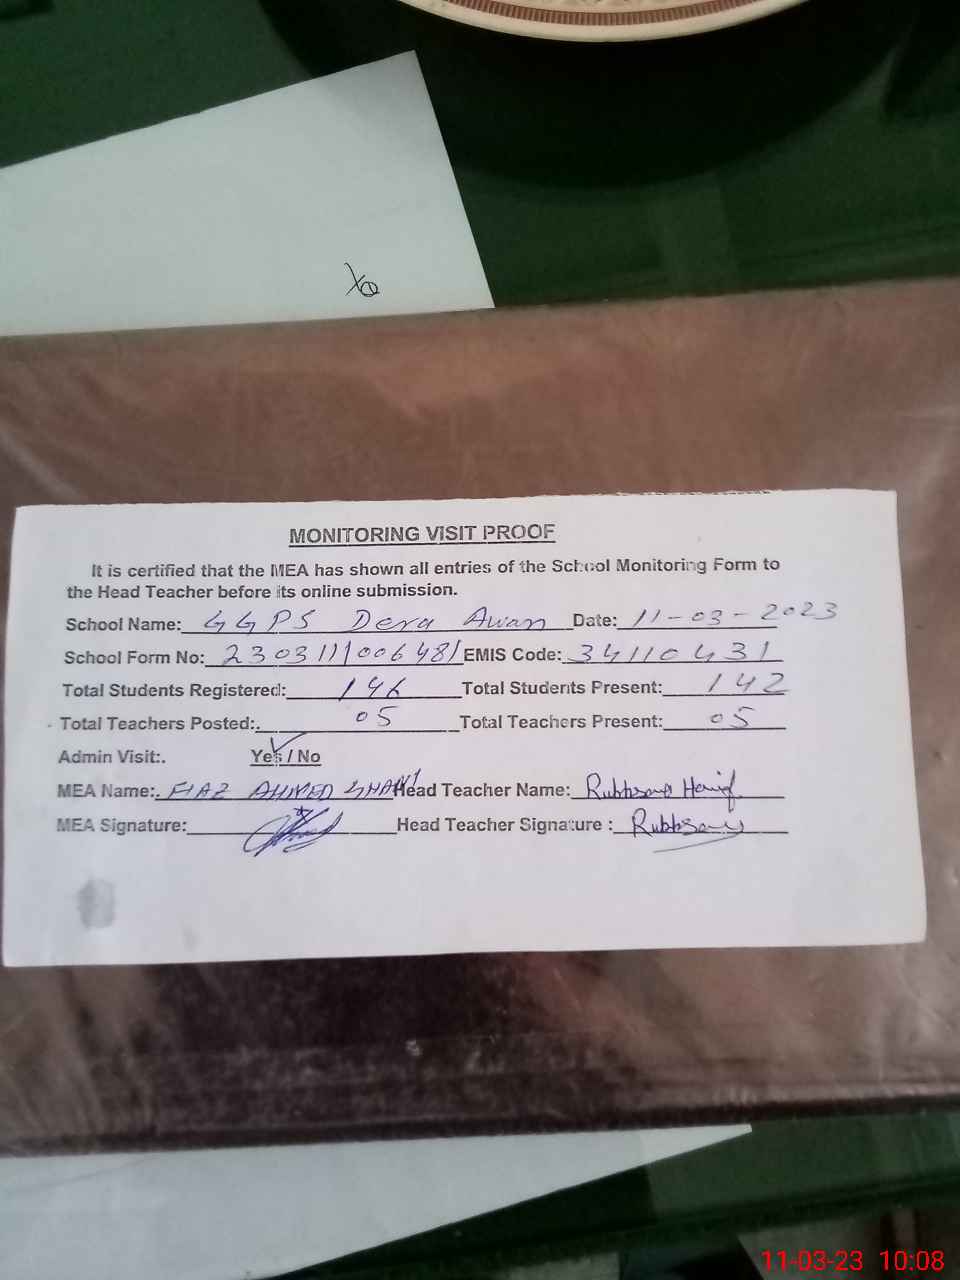 MONITORING VISIT PROOF
It is certified that the MEA has shown all entries of the School Monitoring Form to
the Head Teacher before its online submission.
School Name: GGPS Dera Awan Date: 11-03-2023
School Form No: 2303111006481 EMIS Code: 34110431
Total Students Registered: 146 Total Students Present: 142
Total Teachers Posted: 05 Total Teachers Present: 05
Admin Visit:. Yes / No
MEA Name: FIAZ AHMED Head Teacher Name: Hanif
MEA Signature: Head Teacher Signature :
11-03-23 10:08